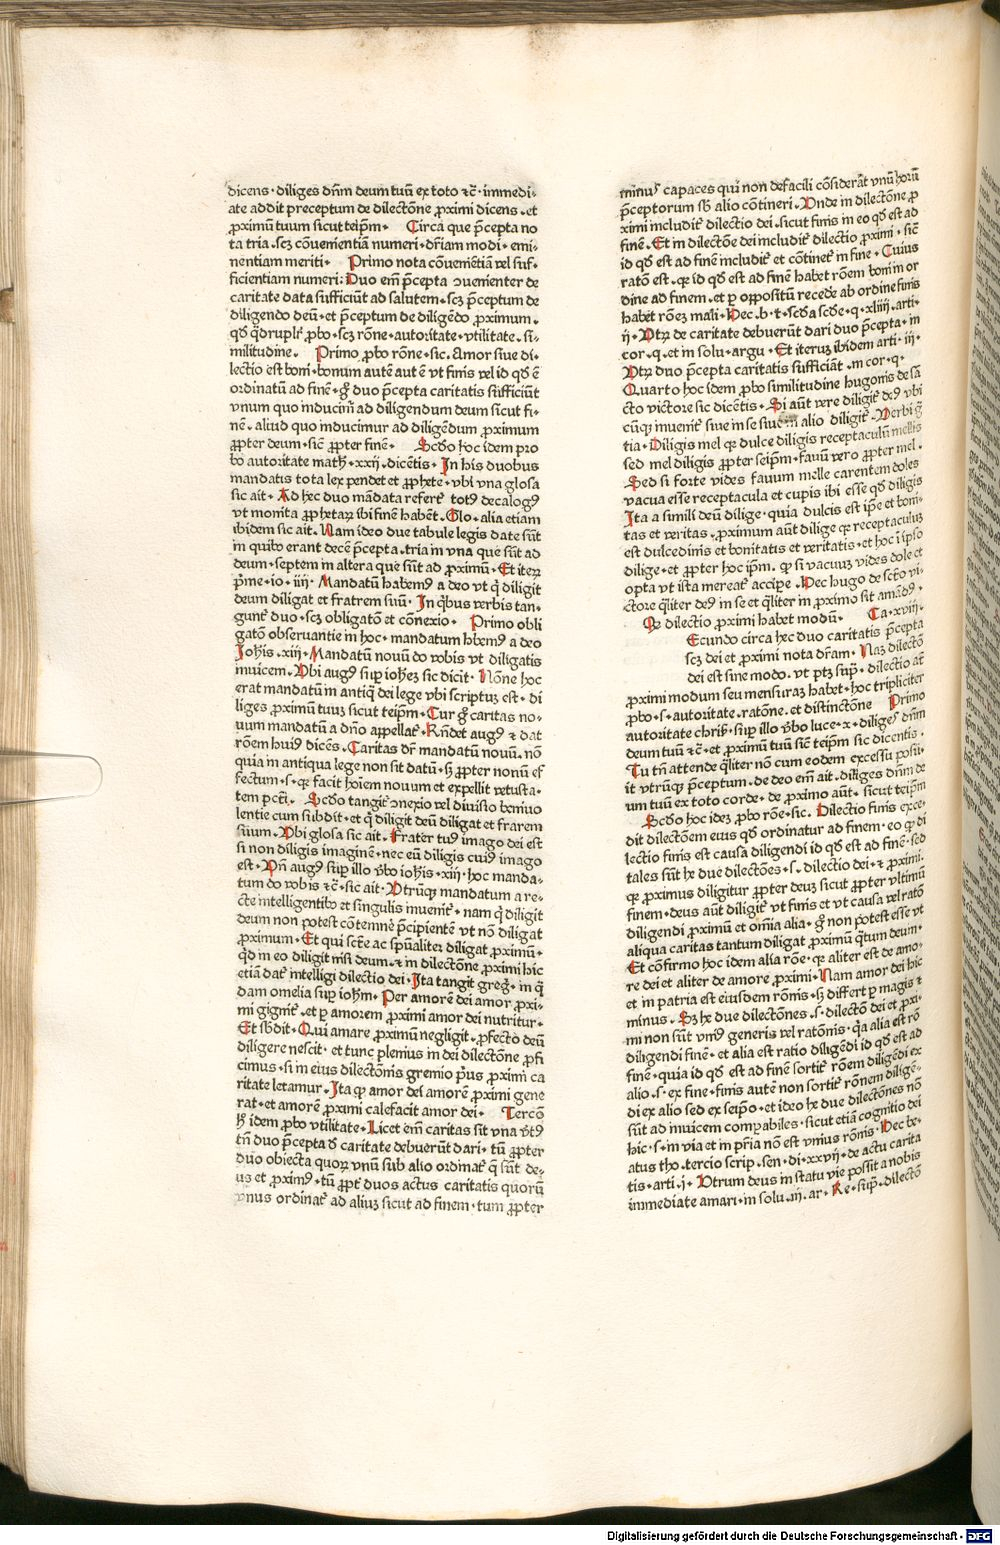 dicens · diliges dñm deum tuū ex toto ⁊c̄ · immedi-
ate addit preceptum de dilectōne ꝓximi dicens · et
ꝓximū tuum sicut teip̄m · Circa que p̄cepta no
ta tria · scꝫ cōuenientiā numeri · dr̄iam modi · emi-
nentiam meriti · Primo nota cōuenientiā vel suf-
ficientiam numeri : Duo em̄ p̄cepta ↄuenienter de
caritate data sufficiūt ad salutem · scꝫ p̄ceptum de
diligendo deū · et p̄ceptum de diligēdo ꝓximum ·
qđ q̄druplr̄ ꝓbo · scꝫ rōne · autoritate · vtilitate · si-
militudine · Primo ꝓbo rōne · sic · Amor siue di-
lectio est boni · bonum autē aut ē vt finis vel id qđ ē
ordinatū ad finē · g̊ duo p̄cepta caritatis sufficiūt
vnum quo inducim̄ ad diligendum deum sicut fi-
nē · aliud quo inducimur ad diligēdum ꝓximum
ꝓpter deum · sic̄ ꝓpter finē · Scđo hoc idem pro
bo autoritate math̄ · xxij · dicētis · In his duobus
mandatis tota lex pendet et ꝓphete · vbi vna glosa
sic ait · Ad hec duo mādata refert̄ totꝰ decalogꝰ
vt monita ꝓphetaꝝ ibi finē habēt · Glo · alia etiam
ibidem sic ait · Nam ideo due tabule legis date sūt
in quibꝰ erant decē p̄cepta · tria in vna que sūt ad
deum · septem in altera que sūt ad ꝓximū · Et iteꝝ
p̄me · io · iiij · Mandatū habemꝰ a deo vt q̄ diligit
deum diligat et fratrem suū · In q̄bus verbis tan-
gunt̄ duo · scꝫ obligatō et cōnexio · Primo obli
gatō obseruantie in hoc · mandatum hēmꝰ a deo
Johis · xiij · Mandatū nouū do vobis vt diligatis
inuicem · Vbi augꝰ sup̄ ioheꝫ sic dicit · Nōne hoc
erat mandatū in antiq̄ dei lege vbi scriptuꝫ est · di
liges ꝓximū tuuꝫ sicut teip̄m · Cur g̊ caritas no-
uum mandatū a dño appellat̄ · Rñdet augꝰ ⁊ dat
rōem huiꝰ dicēs · Caritas dr̄ mandatū nouū · nō
quia in antiqua lege non sit datū · sꝫ ꝓpter nouū ef
fectum · s · qꝛ facit hoīem nouum et expellit vetusta-
tem pctī · Scđo tangit̄ ↄnexio vel diuisio beniuo
lentie cum subdit · et q̄ diligit deū diligat et frarem
suum · Vbi glosa sic ait · Frater tuꝰ imago dei est
si non diligis imaginē · nec eū diligis cuiꝰ imago
est · Vñ augꝰ sup̄ illo v̄bo iohis · xiij · hoc manda-
tum do vobis ⁊c̄ · sic ait · Vtrūqꝫ mandatum a re-
cte intelligentibꝰ et singulis inuenit̄ · nam q̄ diligit
deum non potest cōtemnē p̄cipientē vt nō diligat
ꝓximum · Et qui sct̄e ac sp̄ualiteꝛ diligat ꝓximū ·
qđ in eo diligit nisi deum · ⁊ in dilectōne ꝓximi hic
etiā dat̄ intelligi dilectio dei · Ita tangit gregꝰ · in q̄
dam omelia sup̄ iohm̄ · Per amorē dei amor ꝓxi-
mi gignit̄ · et ꝑ amorem ꝓximi amor dei nutritur ·
Et sb̄dit · Qui amare ꝓximū negligit · ꝓfecto deū
diligere nescit · et tunc plenius in dei dilectōne ꝓfi
cimus · si in eius dilectōnis gremio p̄us ꝓximi ca
ritate letamur · Ita qꝫ amor dei amorē ꝓximi gene
rat · et amorē ꝓximi calefacit amor dei · Tercō
hꝰ idem ꝓbo vtilitate · Licet em̄ caritas sit vna v̄tꝰ
tñ duo p̄cepta đ caritate debuerūt dari · tū ꝓpter
duo obiecta quoꝝ vnū sub alio ordinat̄ q̄ sūt de-
us et ꝓximꝰ · tū ꝓpt̄ duos actus caritatis quorū
vnus ordinat̄ ad aliuꝫ sicut ad finem · tum ꝓpter
minuꝰ capaces qui non defacili cōsiderāt vnū horū
p̄ceptorum sb̄ alio cōtineri · Vnde in dilectōne ꝓ
ximi includit̄ dilectio dei · sicut finis in eo qđ est ad
finē · Et in dilectōe dei includit̄ dilectio ꝓximi · sic̄
id qđ est ad finē includit̄ et cōtinet̄ in fine · Cuius
ratō est · qꝛ id qđ est ad finē habet rōem boni in or
dine ad finem · et ꝑ oppositū recede ab ordine finis
habet rōeꝫ mali · Hec · b · t · scđa scđe · q · xliiij · arti ·
ij · Vtꝝ de caritate debuerūt dari duo p̄cepta · in
cor · q · et in solu · argu · Et iteruꝫ ibidem arti · iij ·
Vtꝝ duo p̄cepta caritatis sufficiāt · in cor · q ·
Quarto hoc idem ꝓbo similitudine hugonis de sā
cto victore sic dicētis · Si aūt vere diligit̄ deꝰ vbi
cūqꝫ inuenit̄ siue in se siue in alio diligit̄ · Verbi g̃
tia · Diligis mel qꝛ dulce diligis receptaculū mellis
sed mel diligis ꝓpter seip̄m · fauū vero ꝓpter mel ·
Sed si forte vides fauum melle carentem doles
vacua esse receptacula et cupis ibi esse qđ diligis
Ita a simili deū dilige · quia dulcis est ip̄e et boni-
tas et veritas · ꝓximum aūt dilige qꝛ receptaculuꝫ
est dulcedinis et bonitatis et veritatis · et hoc ī ipso
dilige · et ꝓpter hoc ip̄m · qꝛ si vacuuꝫ vides dole et
opta vt ista mereat̄ accipe · Hec hugo de scto vi-
ctore q̄liter deꝰ in se et q̄liter in ꝓximo sit amādꝰ ·
Qꝛ dilectio ꝓximi habet modū · Ca · xviij ·
Ecundo circa hec duo caritatis p̄cepta
scꝫ dei et ꝓximi nota dr̄am · Naꝫ dilectō
dei est sine modo · vt ptꝫ sup̄ · dilectio āt
ꝓximi modum seu mensuraꝫ habet · hoc tripliciter
ꝓbo · s · autoritate · ratōne · et distinctōne Primo
autoritate chriẞ · sup̄ illo v̄bo luce · x · diliges dñm
deum tuū ⁊c̄ · et ꝓximū tuū sic̄ teip̄m sic dicentis ·
Tu tñ attende q̄liter nō cum eodem excessu posu-
it vtrūqꝫ p̄ceptum · de deo em̄ ait · diliges dñm de
um tuū ex toto corde · de ꝓximo aūt · sicut teip̄m
Scđo hoc ideꝫ ꝓbo rōe · sic · Dilectio finis exce-
dit dilectōem eius qđ ordinatur ad finem · eo qꝛ di
lectio finis est causa diligendi id qđ est ad finē · sed
tales sūt he due dilectōes · s · dilectio dei · ⁊ ꝓximi ·
qꝛ ꝓximus diligitur ꝓpter deuꝫ sicut ꝓpter vltimū
finem · deus aūt diligit̄ vt finis et vt causa vel ratō
diligendi ꝓximū et om̄ia alia · g̊ non potest esse vt
aliqua caritas tantum diligat ꝓximū q̄tum deum ·
Et cōfirmo hoc idem alia rōe · qꝛ aliter est de amo-
re dei et aliter de amore ꝓximi · Nam amor dei hic
et in patria est eiusdem rōnis · sꝫ differt ꝑ magis ⁊
minus · Sꝫ he due dilectōnes · s · dilectō dei et ꝓxi-
mi non sūt vniꝰ generis vel ratōnis · q̄a alia est rō
diligendi finē · et alia est ratio diligēdi id qđ est ad
finē · quia id qđ est ad finē sortit̄ rōem diligēdi ex
alio · s · ex fine · finis autē non sortit̄ rōnem diligē-
di ex alio sed ex seip̄o · et ideo he due dilectōnes nō
sūt ad inuicem comꝑabiles · sicut etiā cognitio dei
hic · s · in via et in pr̄ia nō est vnius rōnis · Hec be-
atus tho · tercio scrip · sen · di · xxvij · de actu carita
tis · arti · j · Vtrum deus in statu vie possit a nobis
immediate amari · in solu · iij · ar · Re · sup̄ · dilectō
Digitalisierung gefördert durch die Deutsche Forschungsgemeinschaft - DFG